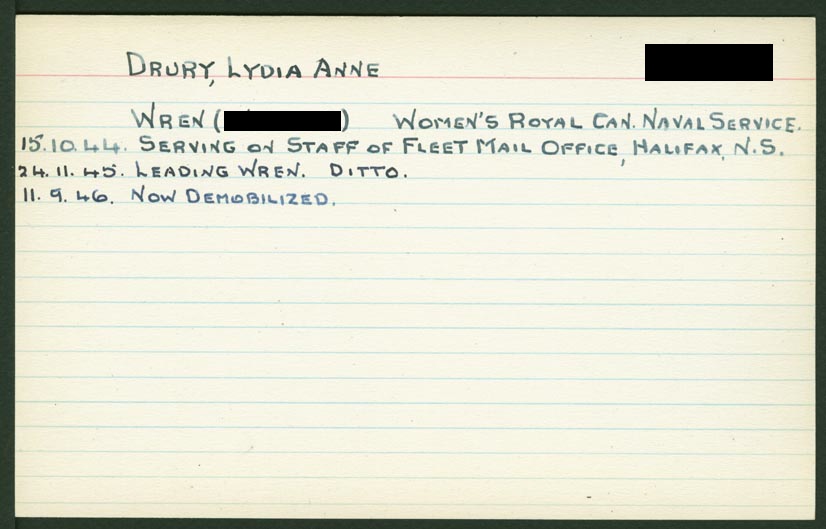 DRURY, LYDIA ANNE
WREN ( ) WOMEN'S ROYAL CAN. NAVAL SERVICE.
15.10.44. SERVING ON STAFF OF FLEET MAIL OFFICE, HALIFAX, N.S.
24.11.45. LEADING WREN. DITTO.
11.9.46. NOW DEMOBILIZED.